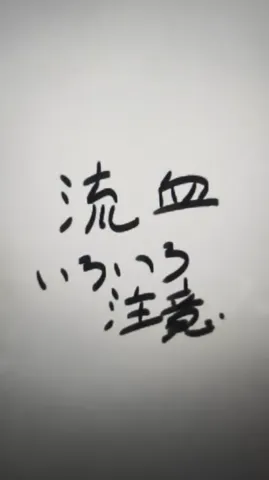 流血
いろいろ
注意.